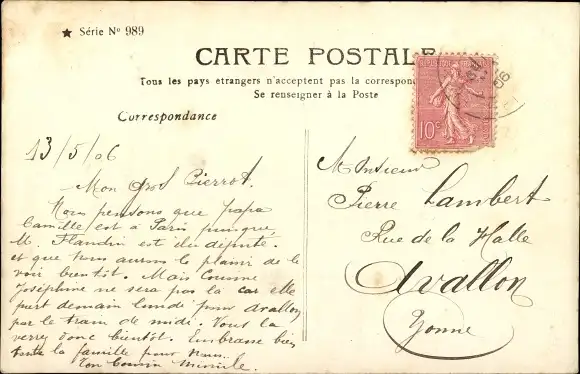 ★ Série Nº 989
CARTE POSTALE
Tous les pays etrangers n'acceptent pas la correspon
Se renseigner à la Poste
Correspondance
REPUBLIQUE FRANÇAISE
10c
06
13/5/06
Mon gros Pierrot.
Nous pensons que papa
Camille est à Paris puisque
M. Flandin est élu député.
et que nous aurons le plaisir de le
voir bientôt. Mais Cousine
Joséphine ne sera pas là car elle
part demain lundi pour Avallon
par le train de midi. Vous la
verrez donc bientôt. Embrasse bien
toute la famille pour nous.
Ton Cousin
Monsieur
Pierre Lambert
Rue de la Halle
Avallon
Yonne